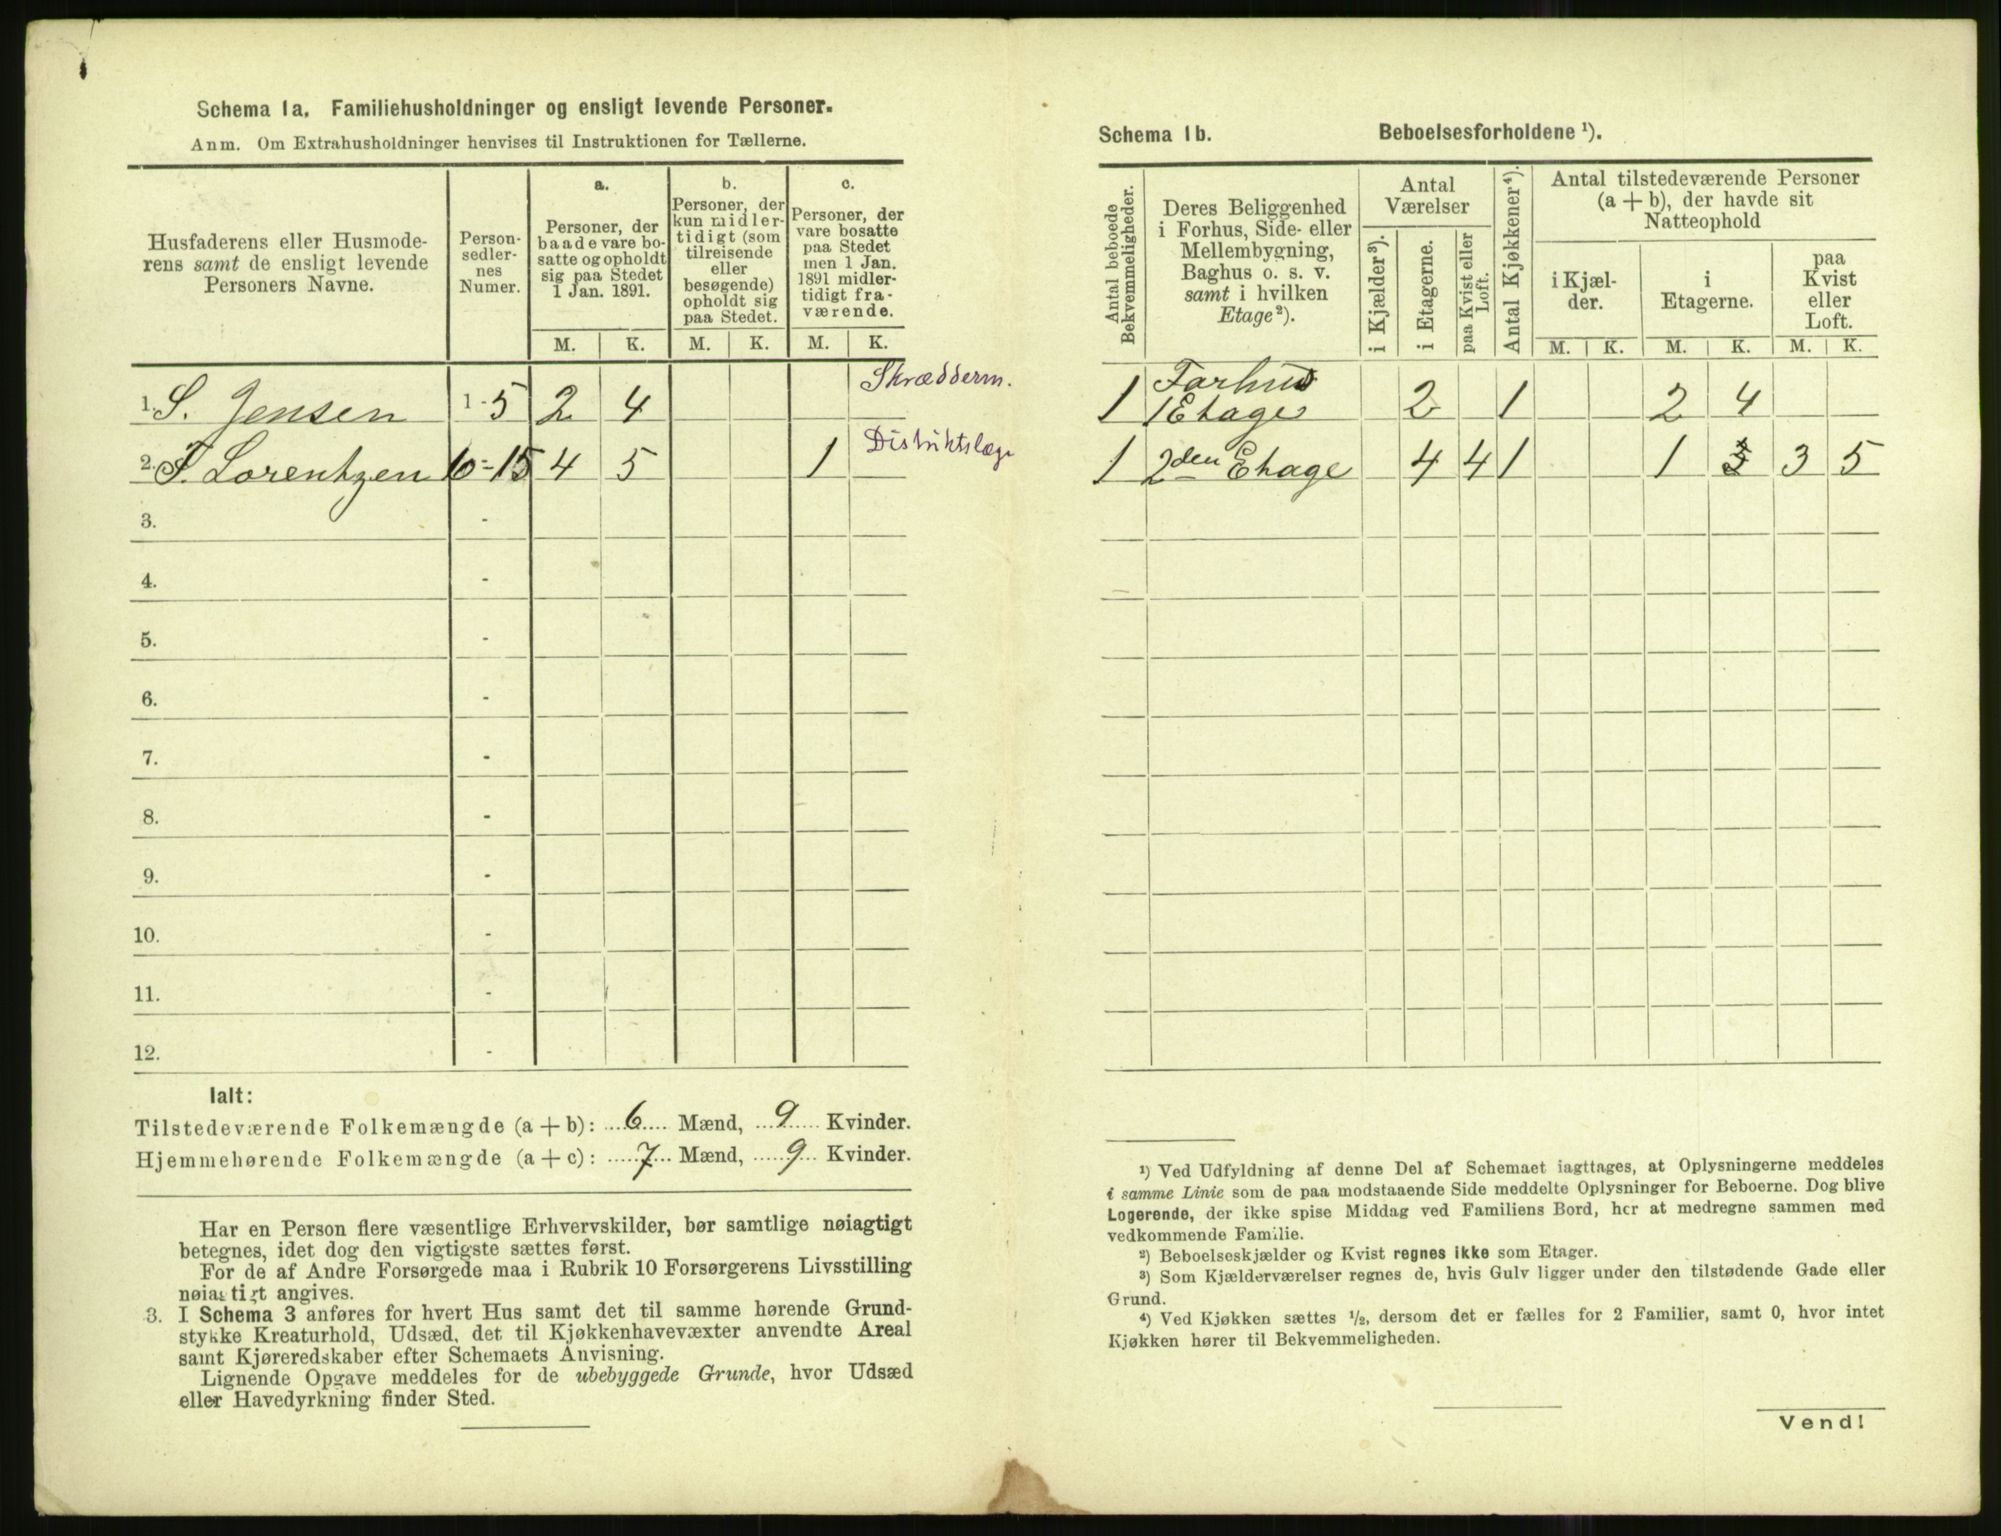 Schema 1a. Familiehusholdninger og ensligt levende Personer.
Anm. Om Extrahusholdninger henvises til Instruktionen for Tællerne.
Husfaderens eller Husmode-
rens samt de ensligt levende
Personers Navne.
Person-
sedler-
nes
Numer.
a.
Personer, der
baade vare bo-
satte og opholdt
sig paa Stedet
1 Jan. 1891.
b.
Personer, der
kun midler-
tidigt (som
tilreisende
eller
besøgende)
opholdt sig
paa Stedet.
c.
Personer, der
vare bosatte
paa Stedet
men 1 Jan.
1891 midler-
tidigt fra-
værende.
M. K. M. K. M. K.
1. S. Jensen 1-5 2 4 Skrædderm.
2. F. Lorentzen 6-15 4 5 1 Distriktslæge
3. -
4. -
5. -
6. -
7. -
8. -
9. -
10. -
11. -
12. -
Ialt:
Tilstedeværende Folkemængde (a + b): 6 Mænd, 9 Kvinder.
Hjemmehørende Folkemængde (a + c): 7 Mænd, 9 Kvinder.
Har en Person flere væsentlige Erhvervskilder, bør samtlige nøiagtigt
betegnes, idet dog den vigtigste sættes først.
For de af Andre Forsørgede maa i Rubrik 10 Forsørgerens Livsstilling
nøiagtigt angives.
3. I Schema 3 anføres for hvert Hus samt det til samme hørende Grund-
stykke Kreaturhold, Udsæd, det til Kjøkkenhavevæxter anvendte Areal
samt Kjøreredskaber efter Schemaets Anvisning.
Lignende Opgave meddeles for de ubebyggede Grunde, hvor Udsæd
eller Havedyrkning finder Sted.
Schema 1b. Beboelsesforholdene 1).
Antal beboede
Bekvemmeligheder.
Deres Beliggenhed
i Forhus, Side- eller
Mellembygning,
Baghus o. s. v.
samt i hvilken
Etage 2).
Antal
Værelser
i Kjælder 3).
i Etagerne.
paa Kvist eller
Loft.
Antal Kjøkkener 4).
Antal tilstedeværende Personer
(a + b), der havde sit
Natteophold
i Kjæl-
der.
i
Etagerne.
paa
Kvist
eller
Loft.
M. K. M. K. M. K.
1 Forhus
1 Etage 2 1 2 4
1 2den Etage 4 4 1 1 3 5
1) Ved Udfyldning af denne Del af Schemaet iagttages, at Oplysningerne meddeles
i samme Linie som de paa modstaaende Side meddelte Oplysninger for Beboerne. Dog blive
Logerende, der ikke spise Middag ved Familiens Bord, her at medregne sammen med
vedkommende Familie.
2) Beboelseskjælder og Kvist regnes ikke som Etager.
3) Som Kjælderværelser regnes de, hvis Gulv ligger under den tilstødende Gade eller
Grund.
4) Ved Kjøkken sættes 1/2, dersom det er fælles for 2 Familier, samt 0, hvor intet
Kjøkken hører til Bekvemmeligheden.
Vend!